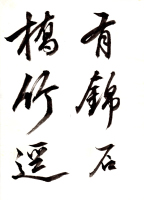 有錦石
橋竹逕